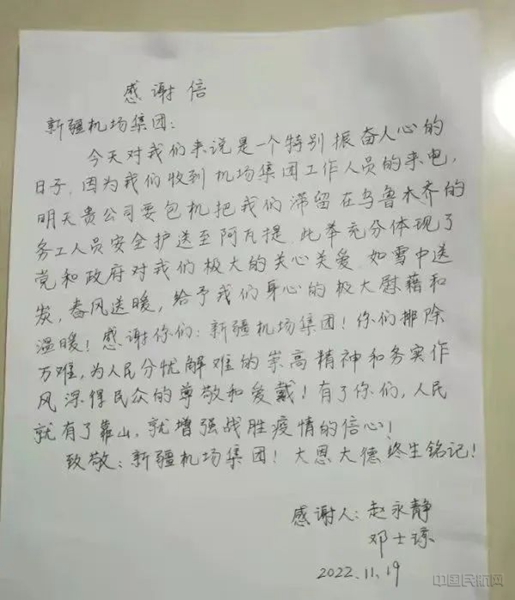 感谢信
新疆机场集团:
今天对我们来说是一个特别振奋人心的
日子,因为我们收到机场集团工作人员的来电,
明天贵公司要包机把我们滞留在乌鲁木齐的
务工人员安全护送至阿瓦提.此举充分体现了
党和政府对我们极大的关心关爱.如雪中送
炭,春风送暖,给予我们身心的极大慰藉和
温暖!感谢你们:新疆机场集团!你们排除
万难,为人民分忧解难的崇高精神和务实作
风深得民众的尊敬和爱戴!有了你们,人民
就有了靠山,就增强战胜疫情的信心!
致敬:新疆机场集团!大恩大德终生铭记!
感谢人:赵永静
邓士琼
2022.11.19
中国民航网